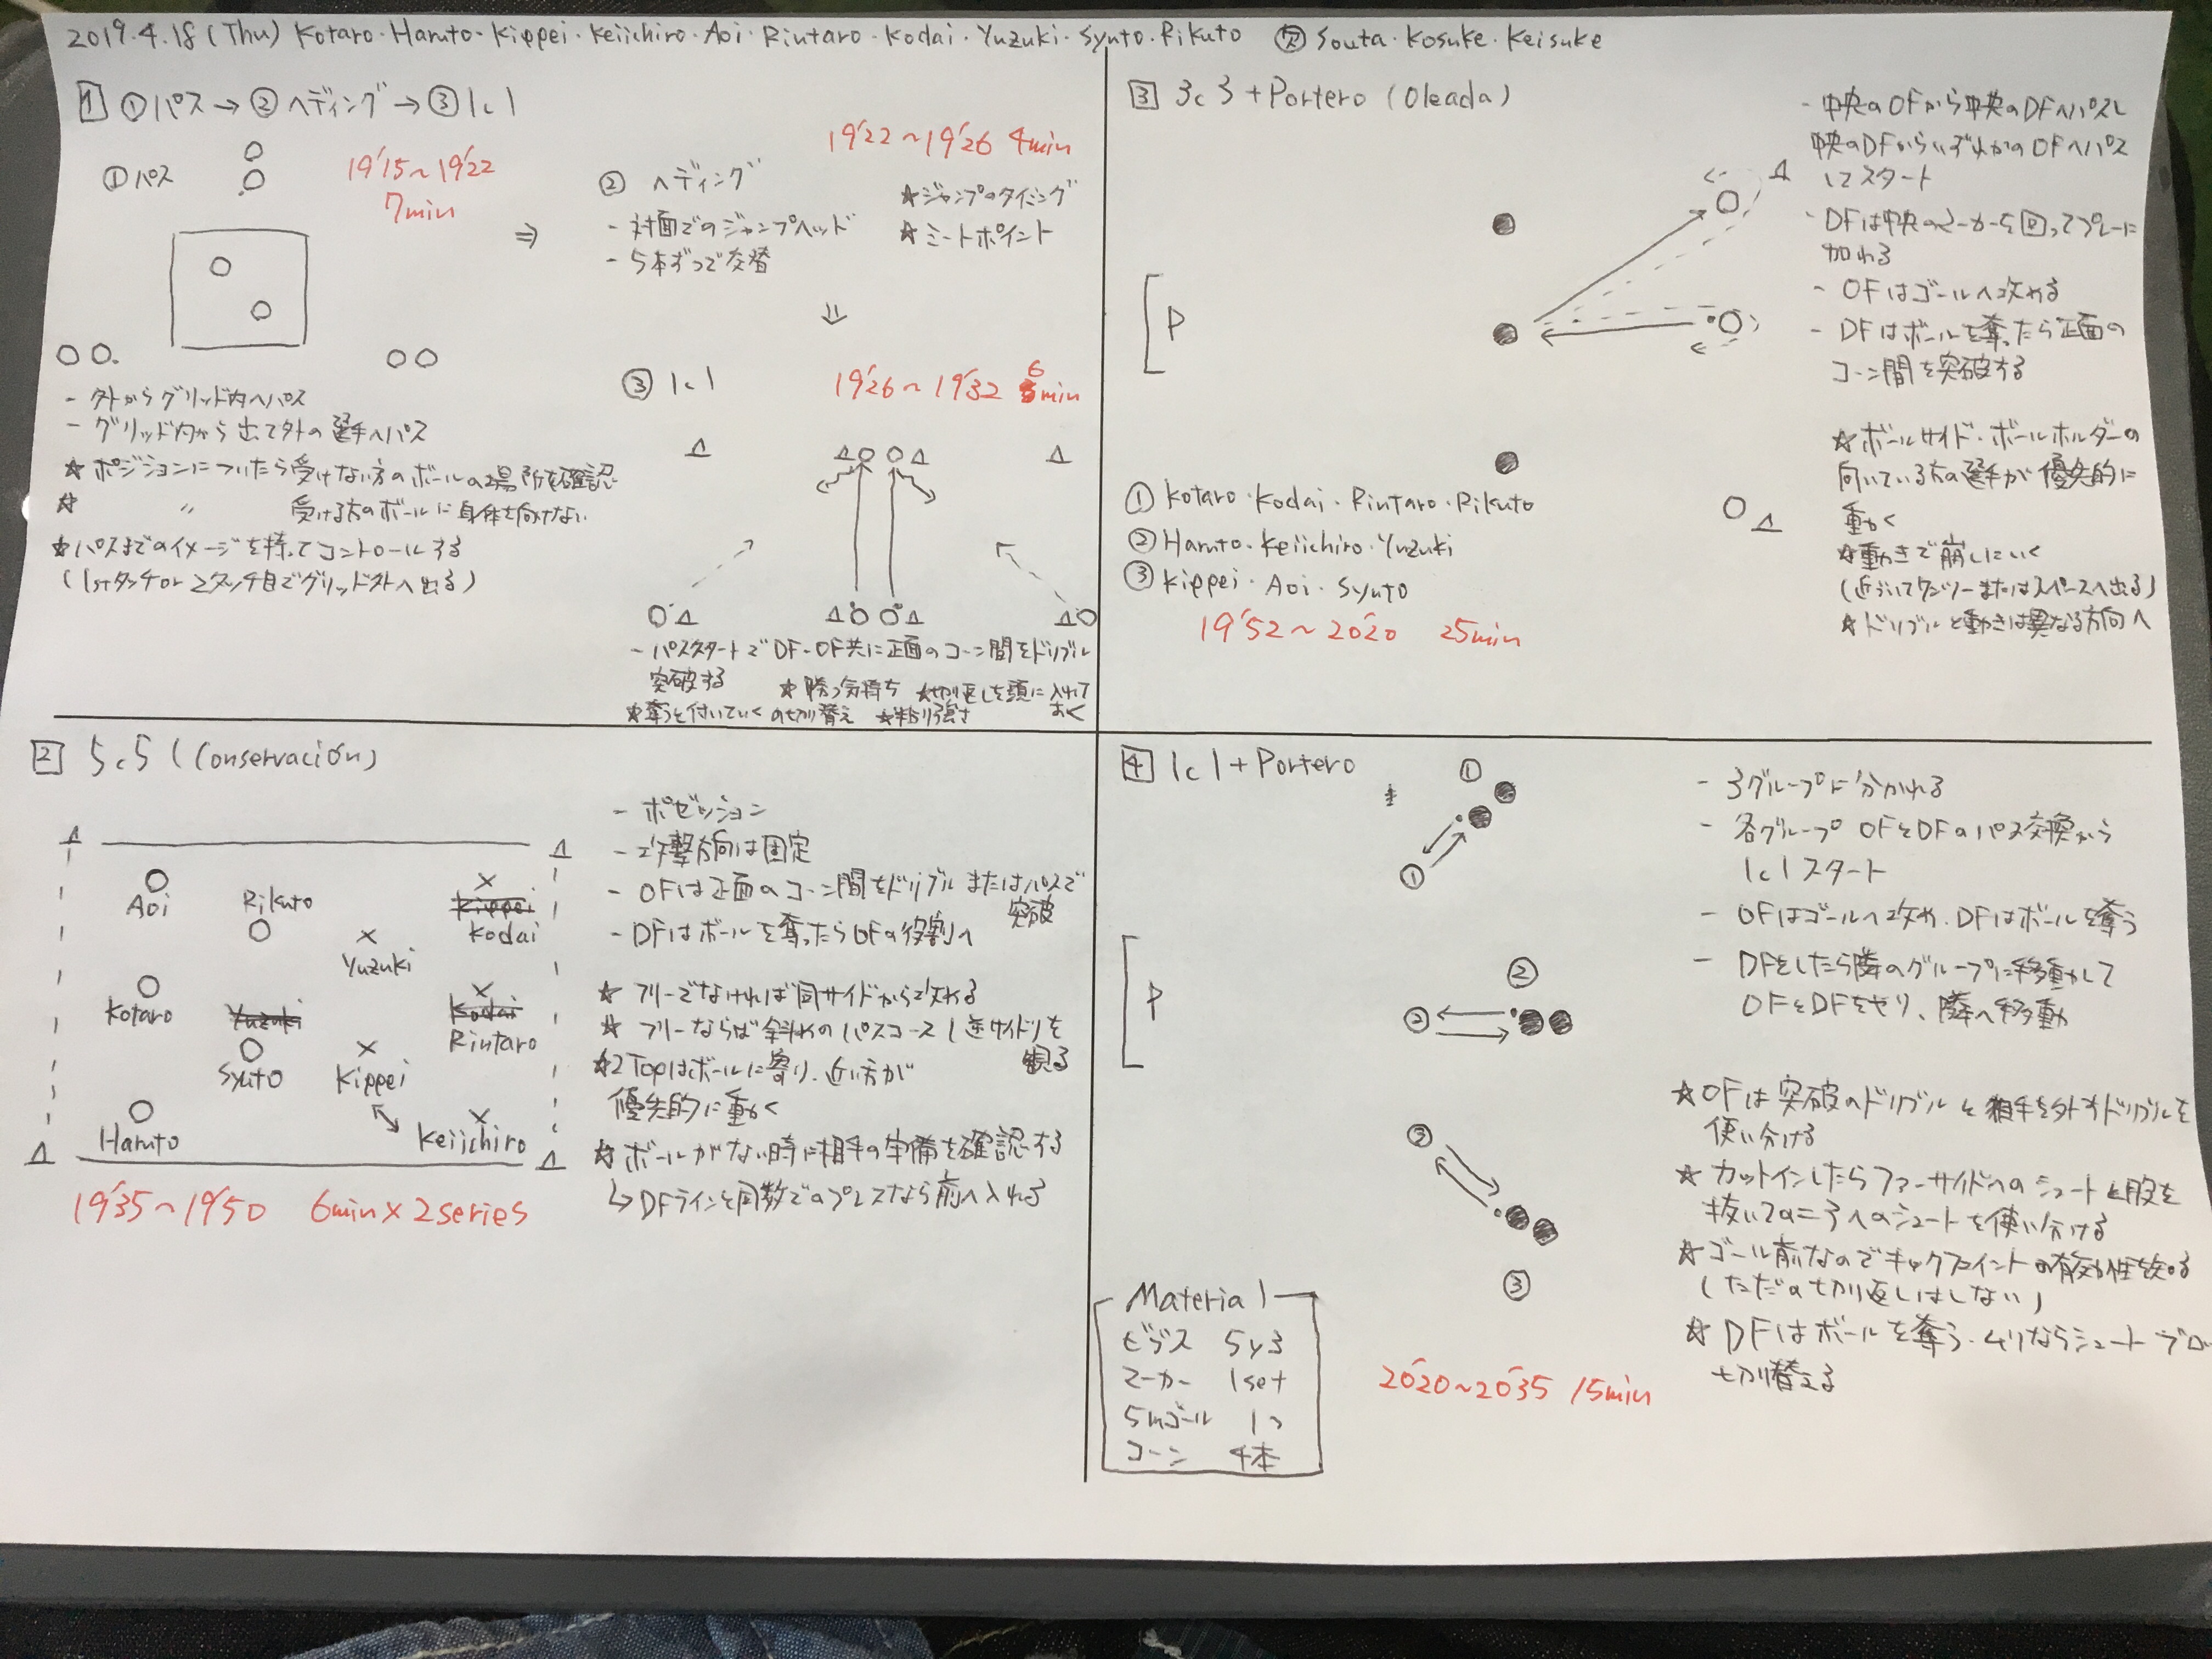 2019.4.18(Thu) Kotaro・Haruto・Kippei・Keiichiro・Aoi・Rintaro・Kodai・Yuzuki・Syuto・Rikuto ㊛ Souta・Kosuke・Keisuke
1 ①パス→②ヘディング→③1c1
①パス
19'15〜19'22
7min
⇒
- 外からグリッド内へパス
- グリッド内から出て外の選手へパス
☆ポジションについたら受けない方のボールの場所を確認
☆ 〃 受ける方のボールに身体を向けない
☆パスまでのイメージを持ってコントロールする
(1stタッチor2タッチ目でグリッド外へ出る)
19'22〜19'26 4min
② ヘディング
- 対面でのジャンプヘッド
- 5本ずつで交替
☆ジャンプのタイミング
☆ミートポイント
⇓
③ 1c1
19'26〜19'32 6min
- パススタートでDF・OF共に正面のコーン間をドリブル
突破する ☆勝つ気持ち ☆切り返しを頭に入れて
おく
☆奪うと付いていくの切り替え ☆粘り強さ
2 5c5 (Conservación)
Aoi
Rikuto
Kippei
Kodai
Yuzuki
Kotaro
Yuzuki
Kodai
Rintaro
Syuto
Kippei
Haruto
Keiichiro
19'35〜19'50 6min×2series
- ポゼッション
- 攻撃方向は固定
- OFは正面のコーン間をドリブルまたはパスで
突破
- DFはボールを奪ったらOFの役割へ
☆ フリーでなければ同サイドから攻める
☆ フリーならば斜めのパスコース、逆サイドを
観る
☆2Topはボールに寄り、近い方が
優先的に動く
☆ボールがない時に相手の守備を確認する
↳DFラインと同数でのプレスなら前へ入れる
3 3c3+Portero (Oleada)
P
- 中央のOFから中央のDFへパスし
中央のDFからいずれかのOFへパス
してスタート
- DFは中央のマーカーを回ってプレーに
加わる
- OFはゴールへ攻める
- DFはボールを奪ったら正面の
コーン間を突破する
☆ボールサイド・ボールホルダーの
向いている方の選手が優先的に
動く
☆動きで崩しにいく
(近づいてワンツーまたはスペースへ出る)
☆ドリブルと動きは異なる方向へ
① Kotaro・Kodai・Rintaro・Rikuto
② Haruto・Keiichiro・Yuzuki
③ Kippei・Aoi・Syuto
19'52〜20'20 25min
4 1c1+Portero
①
①
②
②
③
③
P
- 3グループに分かれる
- 各グループOFとDFのパス交換から
1c1スタート
- OFはゴールへ攻め、DFはボールを奪う
- DFをしたら隣のグループに移動して
OFとDFをやり、隣へ移動
☆OFは突破のドリブルと相手を外すドリブルを
使い分ける
☆カットインしたらファーサイドへのシュートと股を
抜いてのニアへのシュートを使い分ける
☆ゴール前なのでキックフェイントの有効性を知る
(ただの切り返しはしない)
☆DFはボールを奪う、ムリならシュートブロ
切り替える
20'20〜20'35 15min
Material
ビブス 5y3
マーカー 1set
5mゴール 1つ
コーン 4本